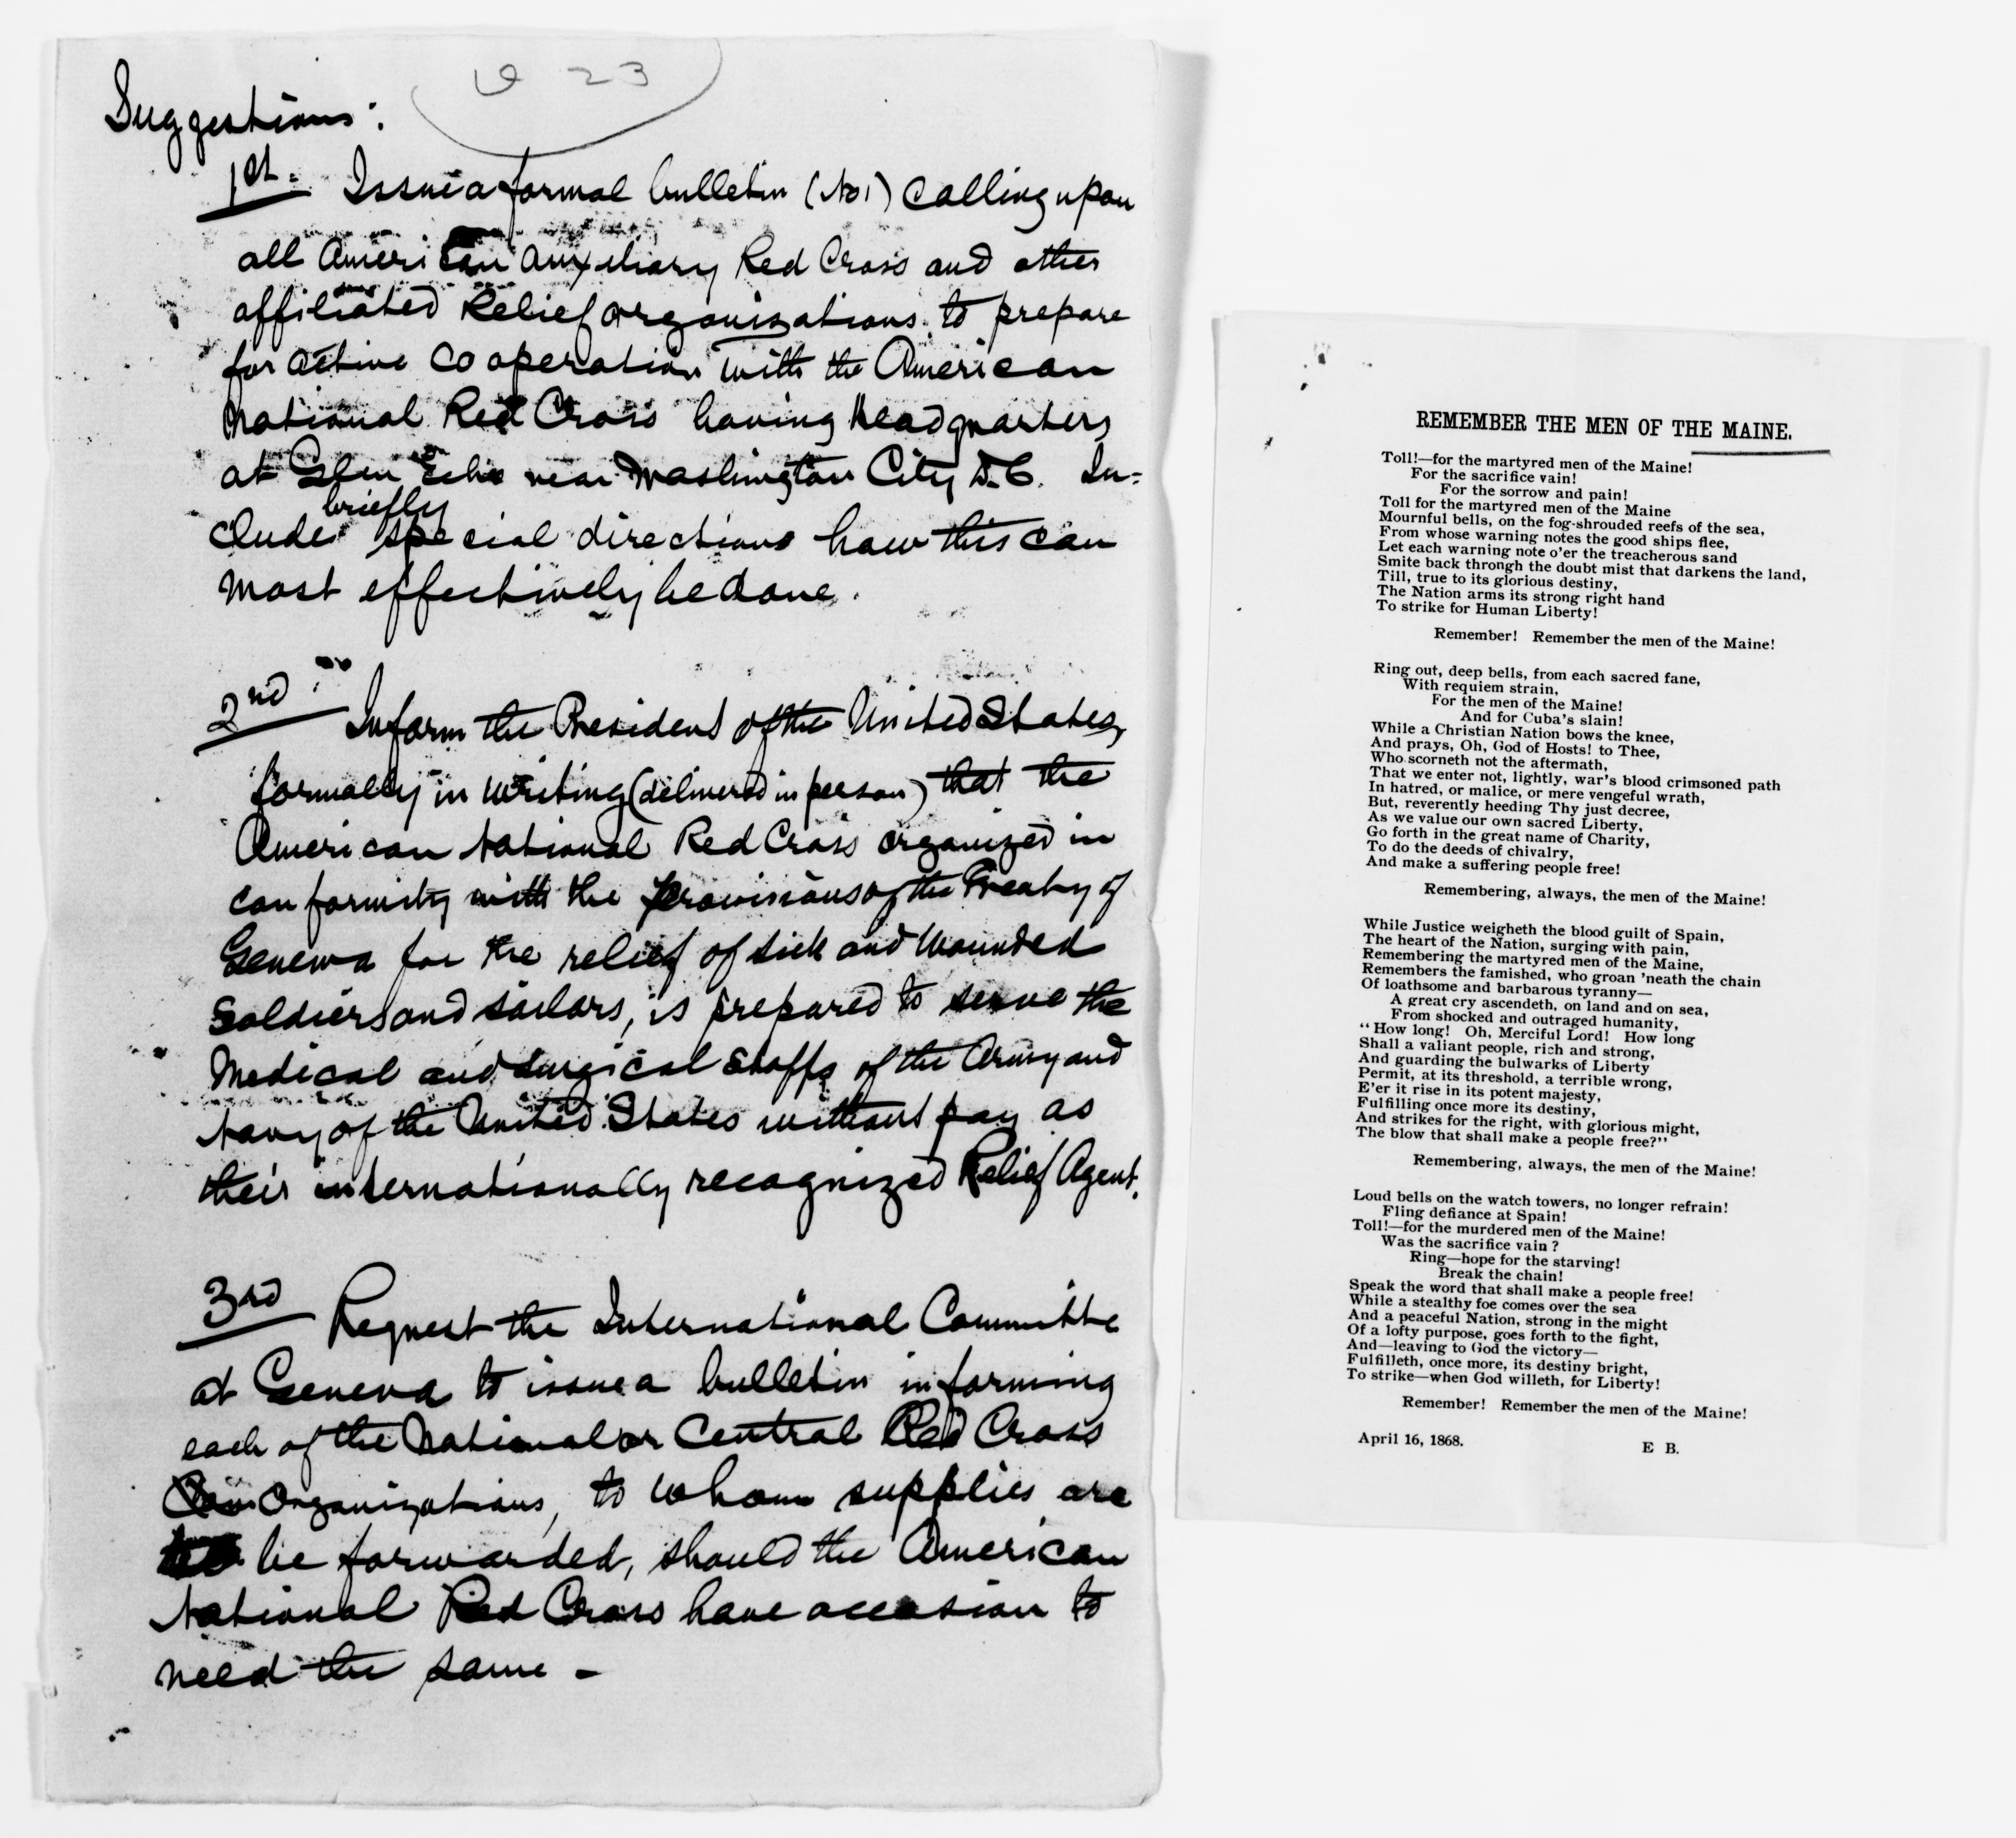 23
Suggestions:
1st. Issue a formal bulletin (No 1) calling upon
all American Auxiliary Red Cross and other
affiliated Relief organizations to prepare
for active cooperation with the American
National Red Cross having Headquarters
at Glen Echo near Washington City D.C. In-
briefly
clude special directions how this can
most effectively be done.
2nd Inform the President of the United States,
formally in writing (delivered in person) that the
American National Red Cross organized in
conformity with the provisions of the Treaty of
Geneva for the relief of sick and wounded
soldiers and sailors, is prepared to serve the
Medical and Surgical Staffs of the Army and
Navy of the United States without pay as
their internationally recognized Relief Agent.
3rd Request the International Committe
at Geneva to issue a bulletin informing
each of the National or Central Red Cross
Organizations, to whom supplies are
be forwarded, should the American
National Red Cross have occasion to
need the same -
REMEMBER THE MEN OF THE MAINE.
Toll!—for the martyred men of the Maine!
For the sacrifice vain!
For the sorrow and pain!
Toll for the martyred men of the Maine
Mournful bells, on the fog-shrouded reefs of the sea,
From whose warning notes the good ships flee,
Let each warning note o'er the treacherous sand
Smite back throngh the doubt mist that darkens the land,
Till, true to its glorious destiny,
The Nation arms its strong right hand
To strike for Human Liberty!
Remember! Remember the men of the Maine!
Ring out, deep bells, from each sacred fane,
With requiem strain,
For the men of the Maine!
And for Cuba's slain!
While a Christian Nation bows the knee,
And prays, Oh, God of Hosts! to Thee,
Who scorneth not the aftermath,
That we enter not, lightly, war's blood crimsoned path
In hatred, or malice, or mere vengeful wrath,
But, reverently heeding Thy just decree,
As we value our own sacred Liberty,
Go forth in the great name of Charity,
To do the deeds of chivalry,
And make a suffering people free!
Remembering, always, the men of the Maine!
While Justice weigheth the blood guilt of Spain,
The heart of the Nation, surging with pain,
Remembering the martyred men of the Maine,
Remembers the famished, who groan 'neath the chain
Of loathsome and barbarous tyranny—
A great cry ascendeth, on land and on sea,
From shocked and outraged humanity,
"How long! Oh, Merciful Lord! How long
Shall a valiant people, rich and strong,
And guarding the bulwarks of Liberty
Permit, at its threshold, a terrible wrong,
E'er it rise in its potent majesty,
Fulfilling once more its destiny,
And strikes for the right, with glorious might,
The blow that shall make a people free?"
Remembering, always, the men of the Maine!
Loud bells on the watch towers, no longer refrain!
Fling defiance at Spain!
Toll!—for the murdered men of the Maine!
Was the sacrifice vain?
Ring—hope for the starving!
Break the chain!
Speak the word that shall make a people free!
While a stealthy foe comes over the sea
And a peaceful Nation, strong in the might
Of a lofty purpose, goes forth to the fight,
And—leaving to God the victory—
Fulfilleth, once more, its destiny bright,
To strike—when God willeth, for Liberty!
Remember! Remember the men of the Maine!
April 16, 1868. E B.